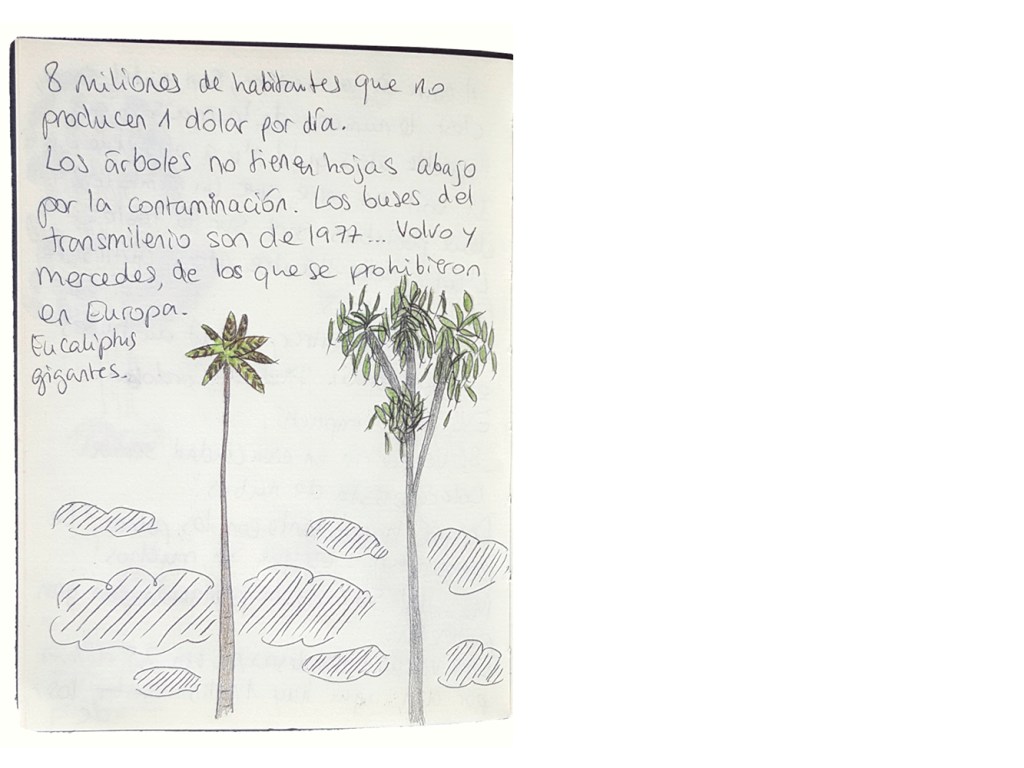 8 millones de habitantes que no
producen 1 dólar por día.
Los árboles no tienen hojas abajo
por la contaminación. Los buses del
transmilenio son de 1977... Volvo y
mercedes, de los que se prohibieron
en Europa.
Eucaliptus
gigantes.